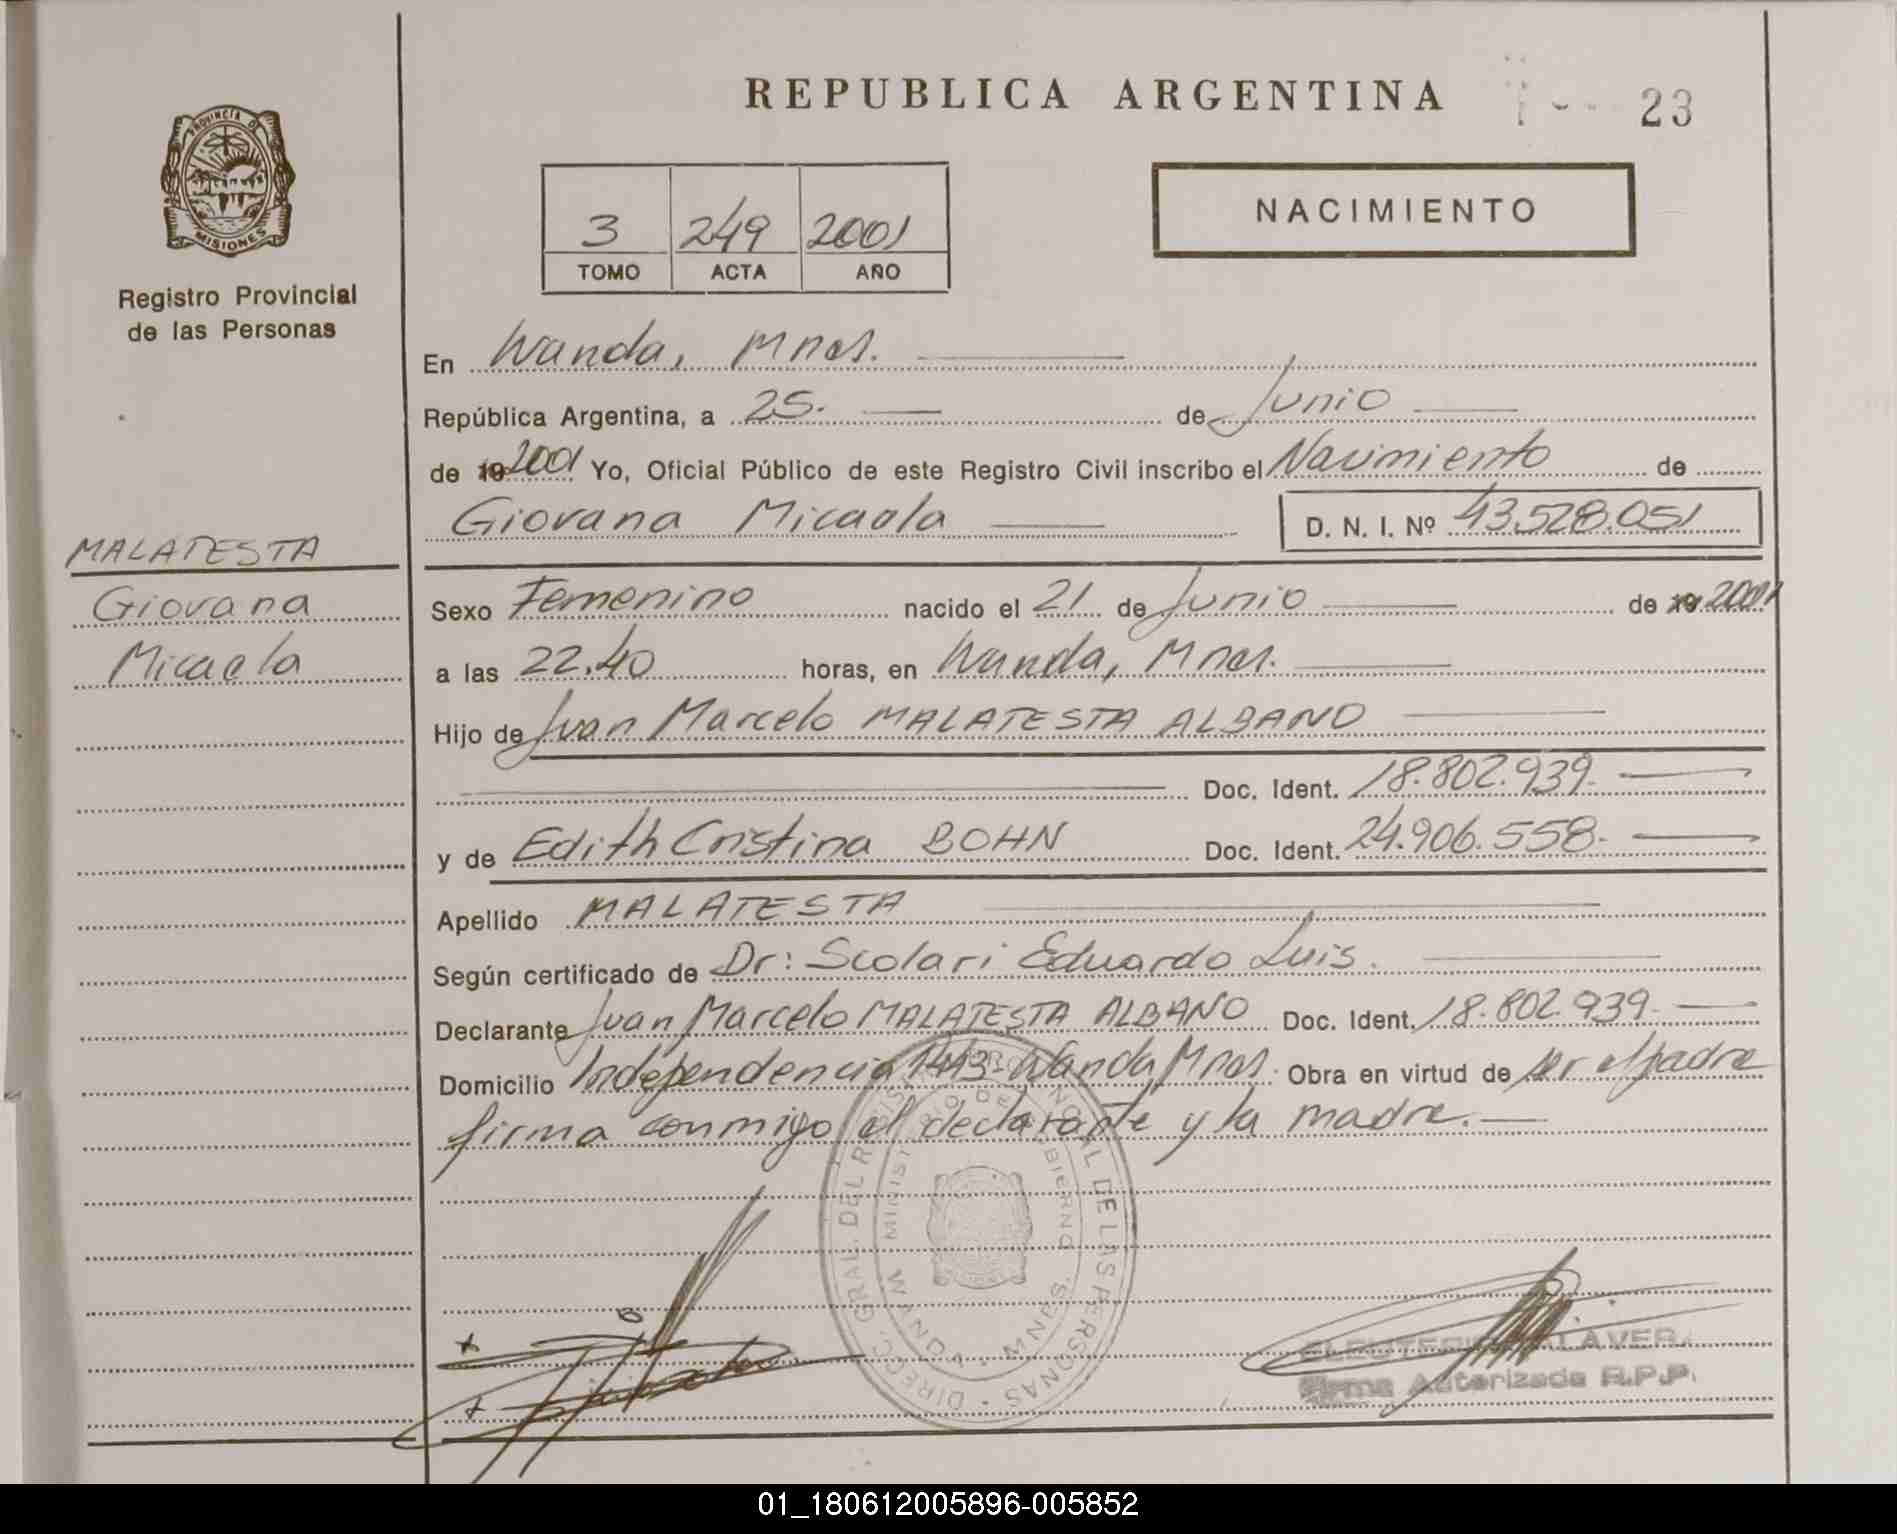 REPUBLICA ARGENTINA
23
PROVINCIA DE
MISIONES
Registro Provincial
de las Personas
3 249 2001
TOMO ACTA AÑO
NACIMIENTO
En Wanda, Mnes.
República Argentina, a 25. de Junio
de 19 2001 Yo, Oficial Público de este Registro Civil inscribo el Nacimiento de
Giovana Micaela D. N. I. Nº 43.528.051
MALATESTA
Giovana
Micaela
Sexo Femenino nacido el 21 de Junio de 19 2001
a las 22.40 horas, en Wanda, Mnes.
Hijo de Juan Marcelo MALATESTA ALBANO
Doc. Ident. 18.802.939.
y de Edith Cristina BOHN Doc. Ident. 24.906.558.
Apellido MALATESTA
Según certificado de Dr: Scolari Eduardo Luis.
Declarante Juan Marcelo MALATESTA ALBANO Doc. Ident. 18.802.939.
Domicilio Independencia 1413 - Wanda Mnes. Obra en virtud de ser el padre
firma conmigo el declarante y la madre.
DIRECC. GRAL. DEL REGISTRO PROVINCIAL DE LAS PERSONAS
MINISTERIO DE GOBIERNO
WANDA MNES.
Firma Autorizada R.P.P.
01_180612005896-005852